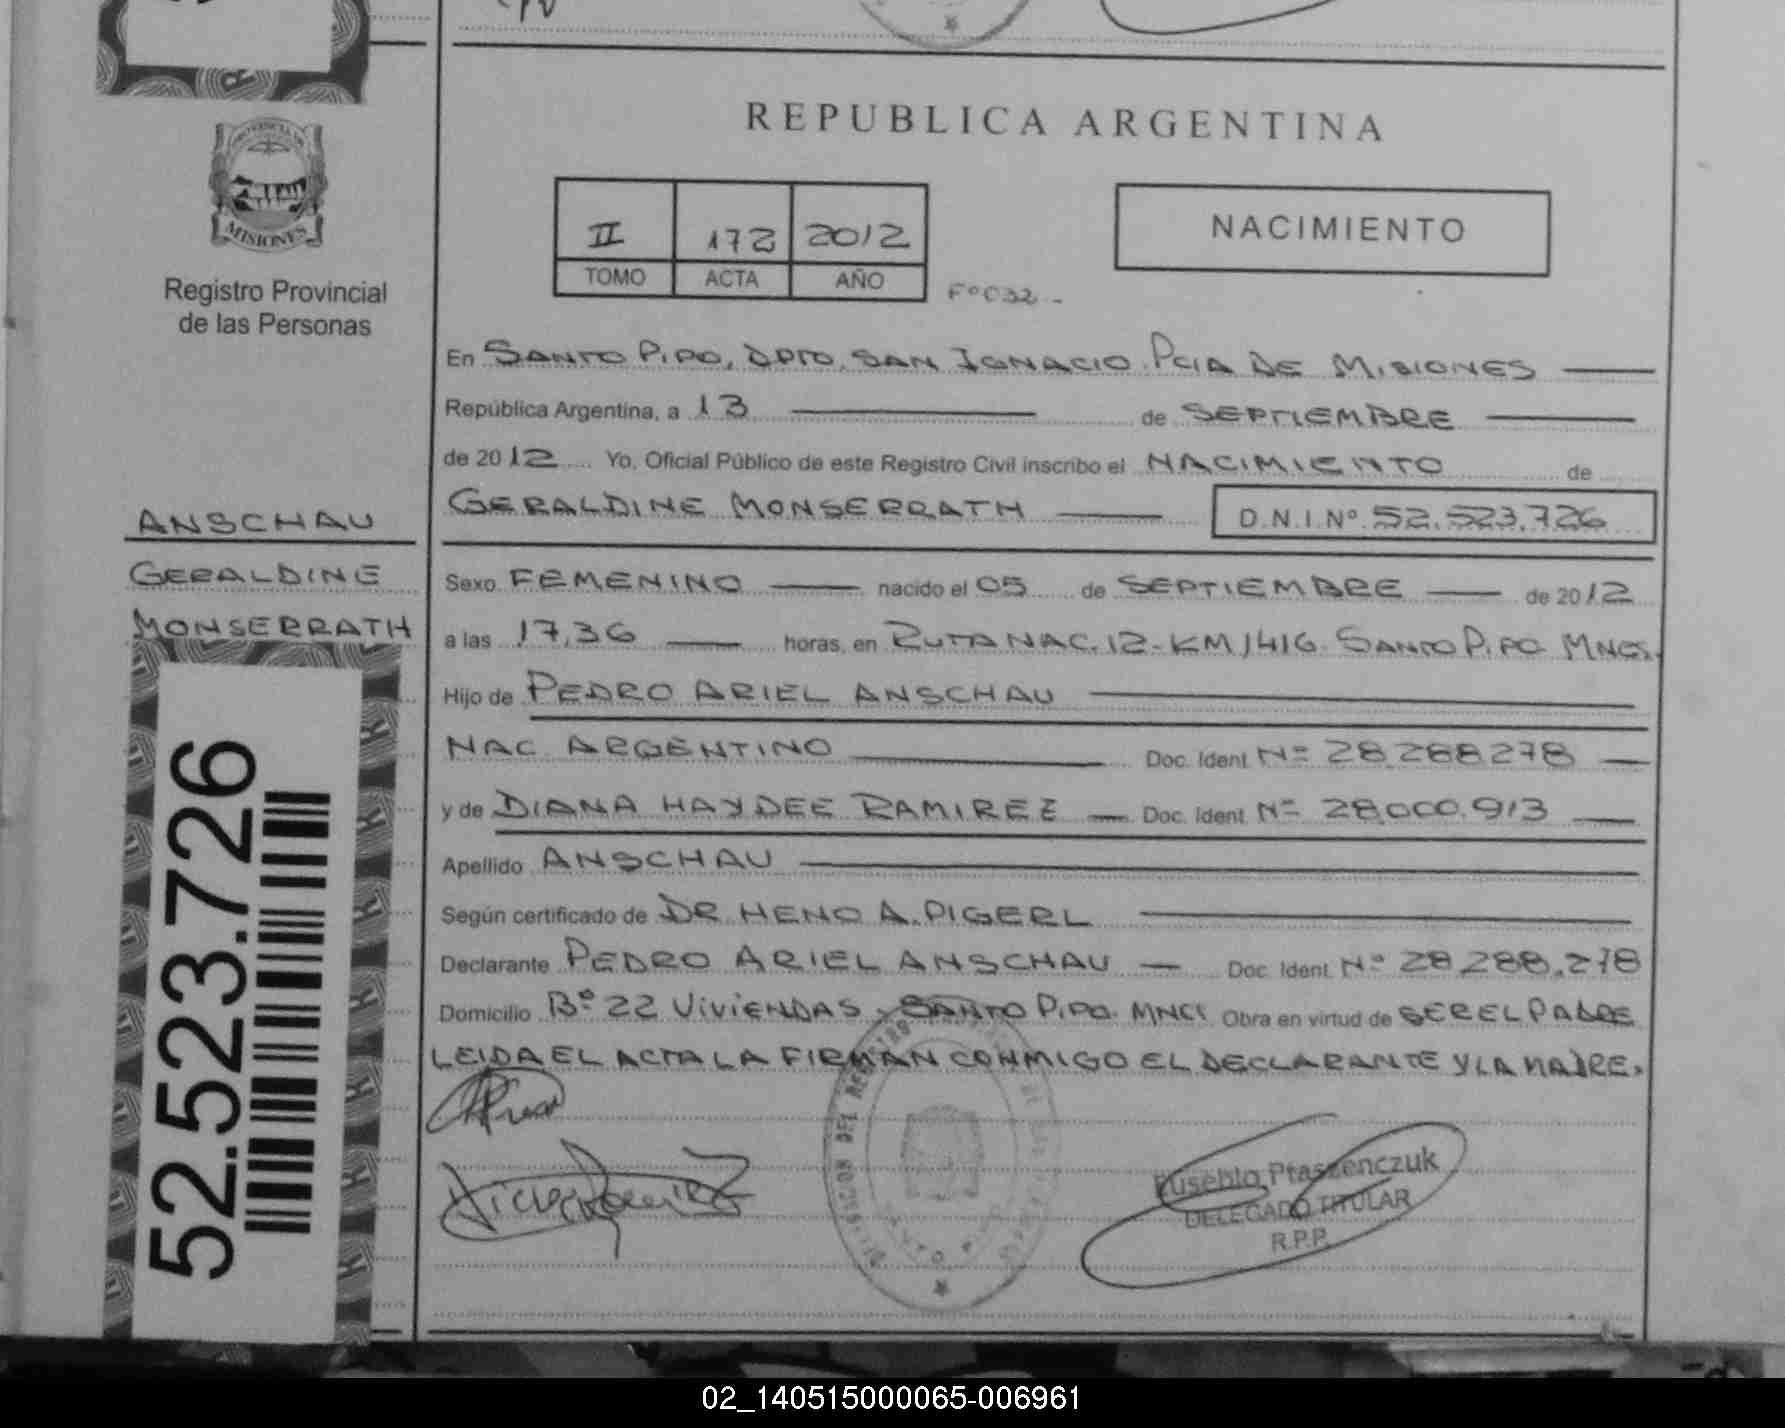 REPUBLICA ARGENTINA
PROVINCIA DE
MISIONES
Registro Provincial
de las Personas
II 172 2012
TOMO ACTA AÑO
Fº 032 -
NACIMIENTO
En SANTO PIPO, DPTO. SAN IGNACIO. PCIA DE MISIONES
República Argentina, a 13 de SEPTIEMBRE
de 2012 Yo, Oficial Público de este Registro Civil inscribo el NACIMIENTO de
GERALDINE MONSERRATH D.N.I.Nº 52.523.726
ANSCHAU
GERALDINE
MONSERRATH
52.523.726
Sexo FEMENINO nacido el 05 de SEPTIEMBRE de 2012
a las 17,36 horas, en RUTA NAC. 12 - KM 1416. SANTO PIPO MNES.
Hijo de PEDRO ARIEL ANSCHAU
NAC. ARGENTINO Doc. Ident. Nº 28.288.278
y de DIANA HAYDEE RAMIREZ Doc. Ident. Nº 28.000.913
Apellido ANSCHAU
Según certificado de DR. HENO A. PIGERL
Declarante PEDRO ARIEL ANSCHAU Doc. Ident. Nº 28.288.278
Domicilio Bº 22 VIVIENDAS, SANTO PIPO. MNES Obra en virtud de SER EL PADRE
LEIDA EL ACTA LA FIRMAN CONMIGO EL DECLARANTE Y LA MADRE.
Diana Ramirez
Eusebio Ptaszenczuk
DELEGADO TITULAR
R.P.P.
02_140515000065-006961